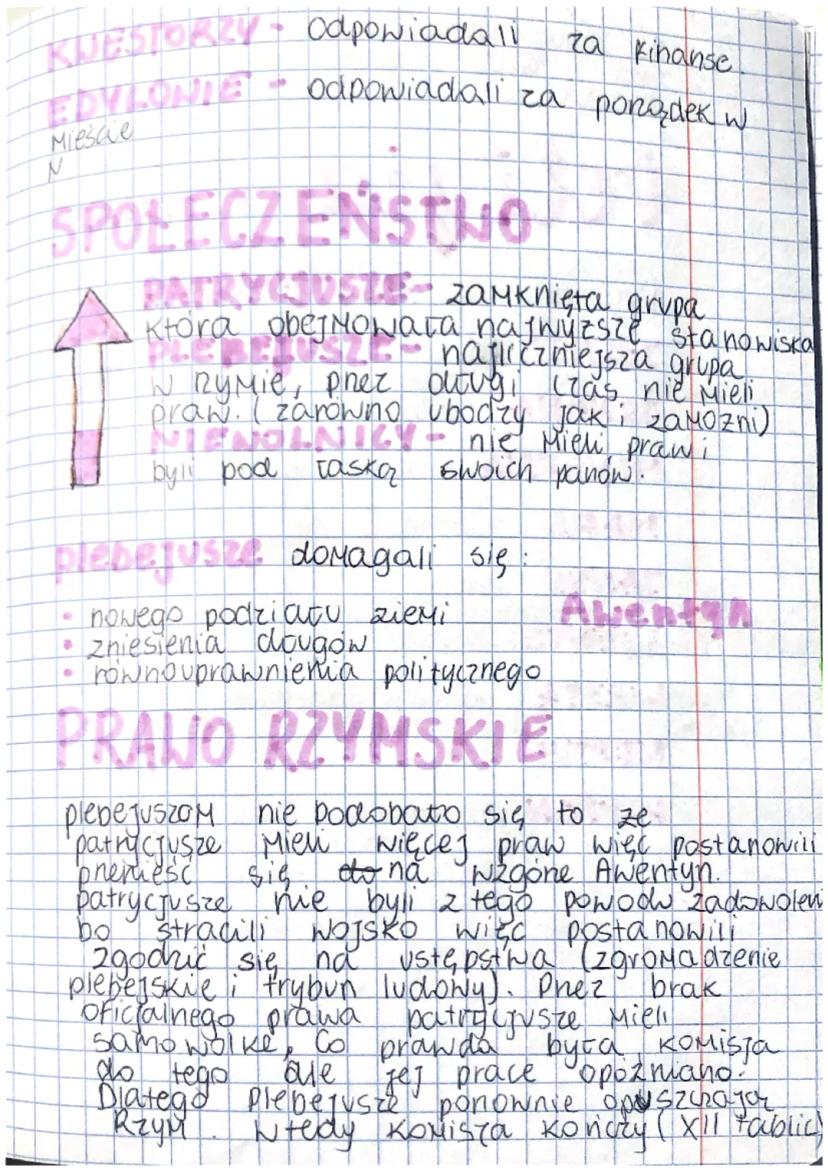 KWESTORZY - odpowiadali za finanse.
EDYLOWIE - odpowiadali za porządek w
Mieście
N
SPOŁECZEŃSTWO
PATRYCJUSZE - zamknięta grupa
która obejmowała najwyższe stanowiska
PLEBEJUSZE - najliczniejsza grupa
w Rzymie, przez długi czas nie mieli
praw. (zarówno ubodzy jak i zamożni)
NIEWOLNICY - nie mieli praw i
byli pod łaską swoich panów.
plebejusze domagali się:
• nowego podziału ziemi
Awentyn
• zniesienia długów
• równouprawnienia politycznego
PRAWO RZYMSKIE
plebejuszom nie podobało się to że
patrycjusze mieli więcej praw więc postanowili
przenieść się do na wzgórze Awentyn.
patrycjusze nie byli z tego powodu zadowoleni
bo stracili wojsko więc postanowili
zgodzić się na ustępstwa (zgromadzenie
plebejskie i trybun ludowy). Przez brak
oficjalnego prawa patrycjusze mieli
samowolkę, Co prawda była komisja
do tego ale jej prace opóźniano.
Dlatego plebejusze ponownie opuszczają
Rzym. Wtedy komisja kończy (XII tablic)